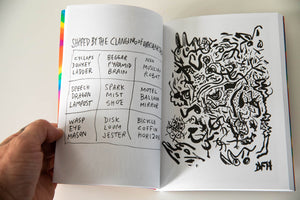 SHAPED BY THE CLANGING OF
CYCLOPS
DONKEY
LADDER
BEGGAR
PYRAMID
BRAIN
NUN
ROBOT
SPEECH
DRAGON
LAMPOST
SPARK
MIST
SHOE
MOTEL
BALLOON
MIRROR
WASP
EYE
MASON
DISK
LOOM
JESTER
BICYCLE
COFFIN
HORIZON